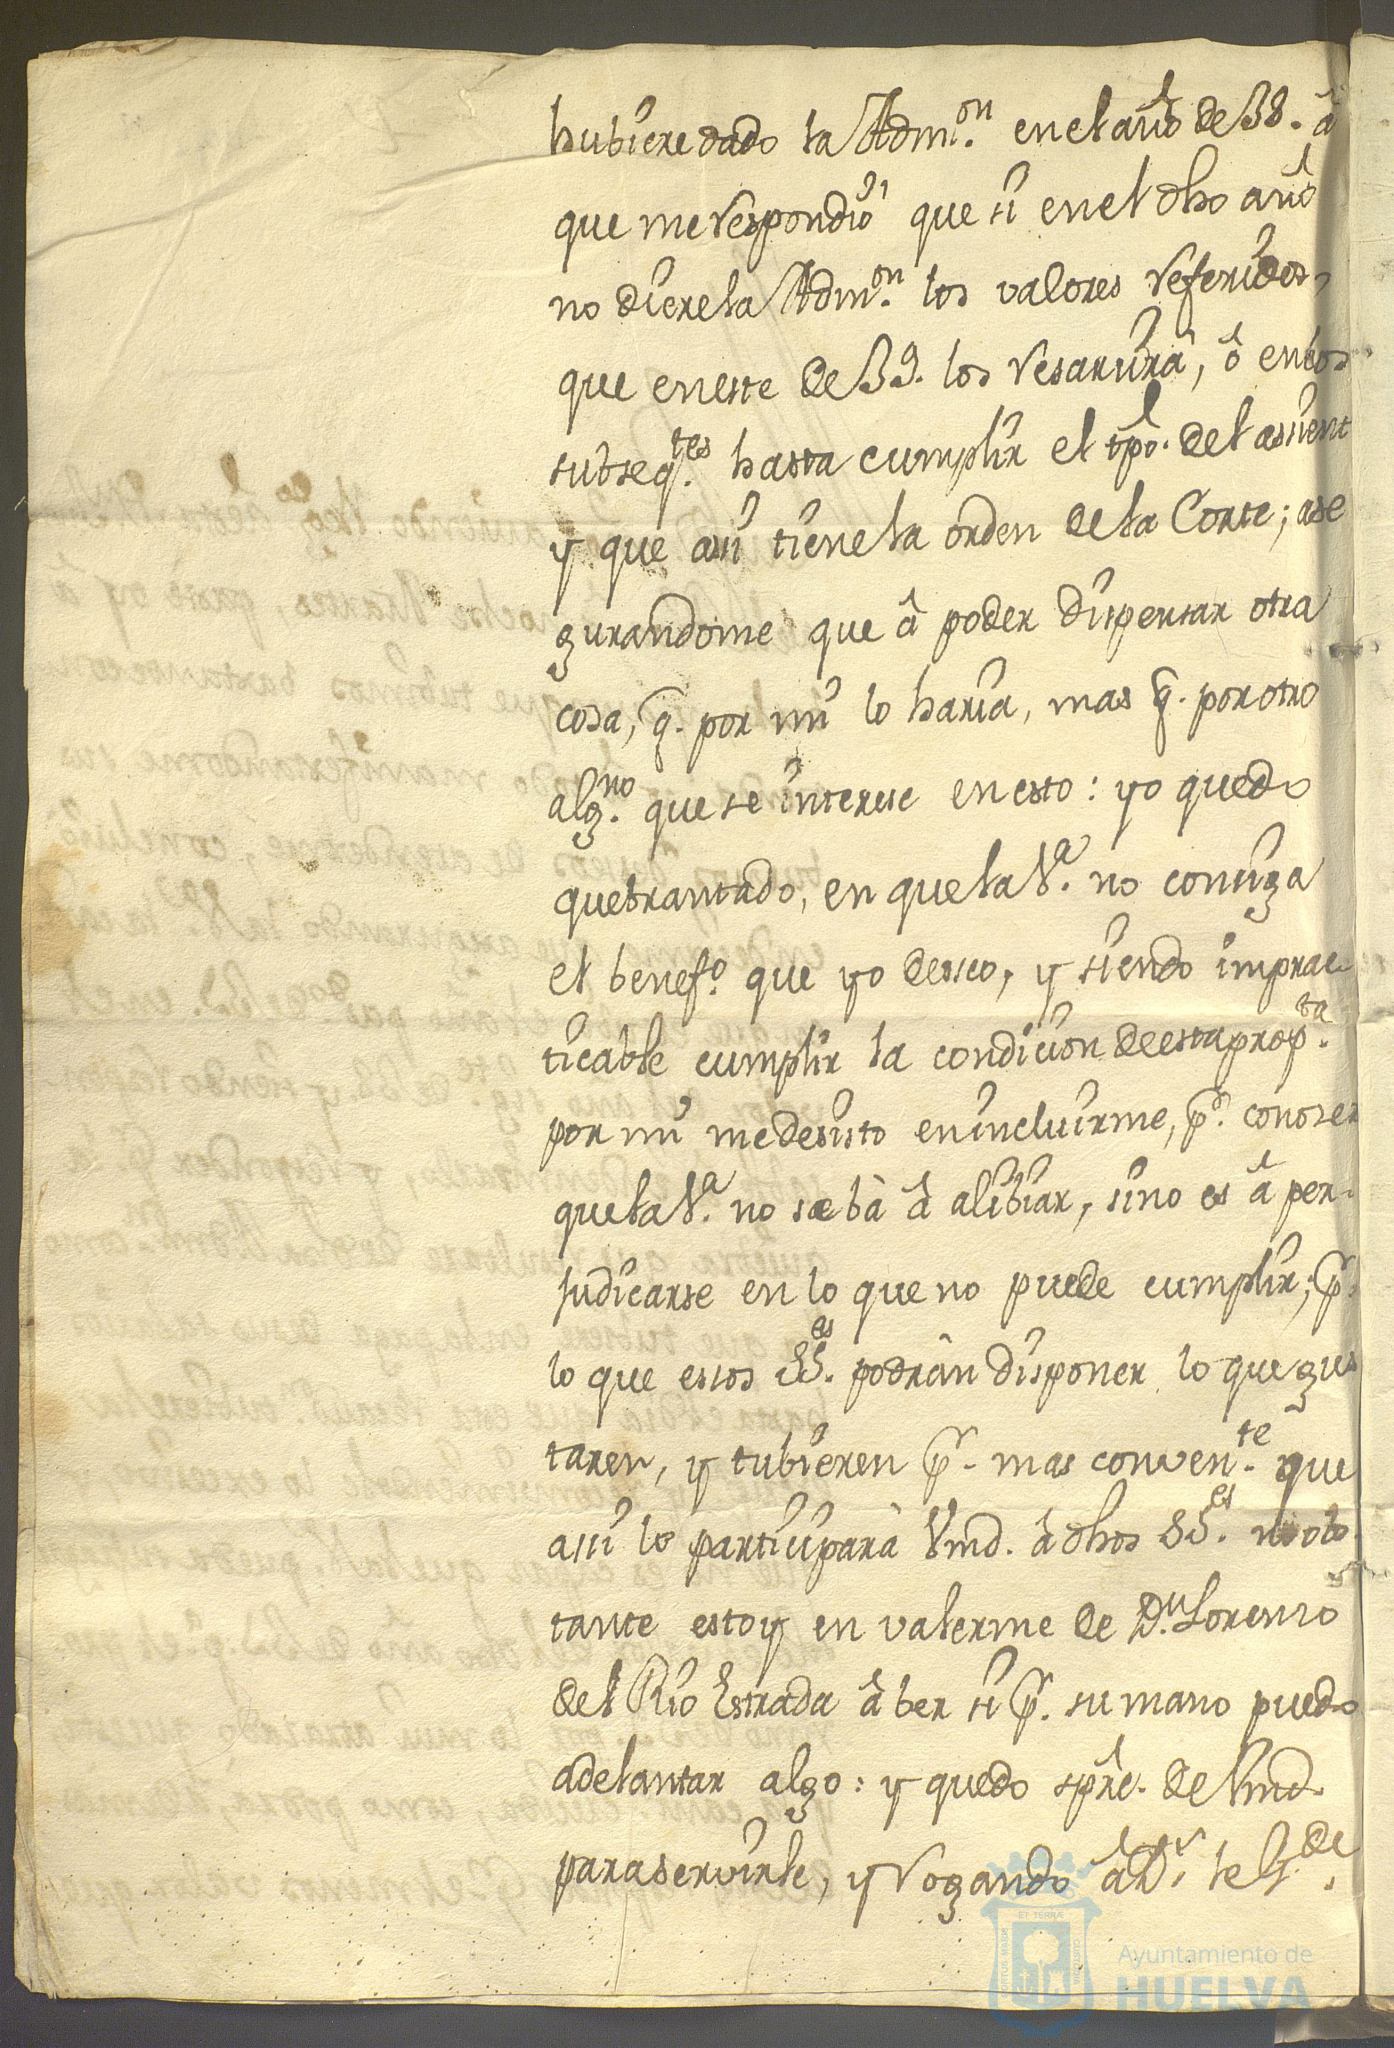 hubiere dado la Admon. en el año de 38. â
que me respondiò que si en el dho año
no diere la Admon. los valores referidos,
que en este de 39. los resarzirâ, ô en los
subseqtes. hasta cumplir el tpo. del assient
y que assi tiene la orden de la Corte; ase
gurandome que â poder dispensar otra
cosa, q. por mi lo haria, mas q. por otro
algno. que se interese en esto: yo quedo
quebrantado, en que la Va. no consiga
el benefo. que yo desseo, y siendo imprac-
ticable cumplir la condicion de esta propta.
por mi me desisto en incluirme, pr. conoser
que la Va. no se bà â alibiar, sino es â per-
judicarse en lo que no puede cumplir; pr.
lo que estos SSes. podràn disponer lo que gus
taren, y tubieren pr. mas convente. que
assi lo participarà Vmd. â dhos SSes. no obs
tante estoy en valerme de Dn. Lorenzo
del Rio Estrada â ber si pr. su mano puedo
adelantar algo: y quedo spre. de Vmd.
para servirle, y rogando â Ds. le gde.
Ayuntamiento de
HUELVA